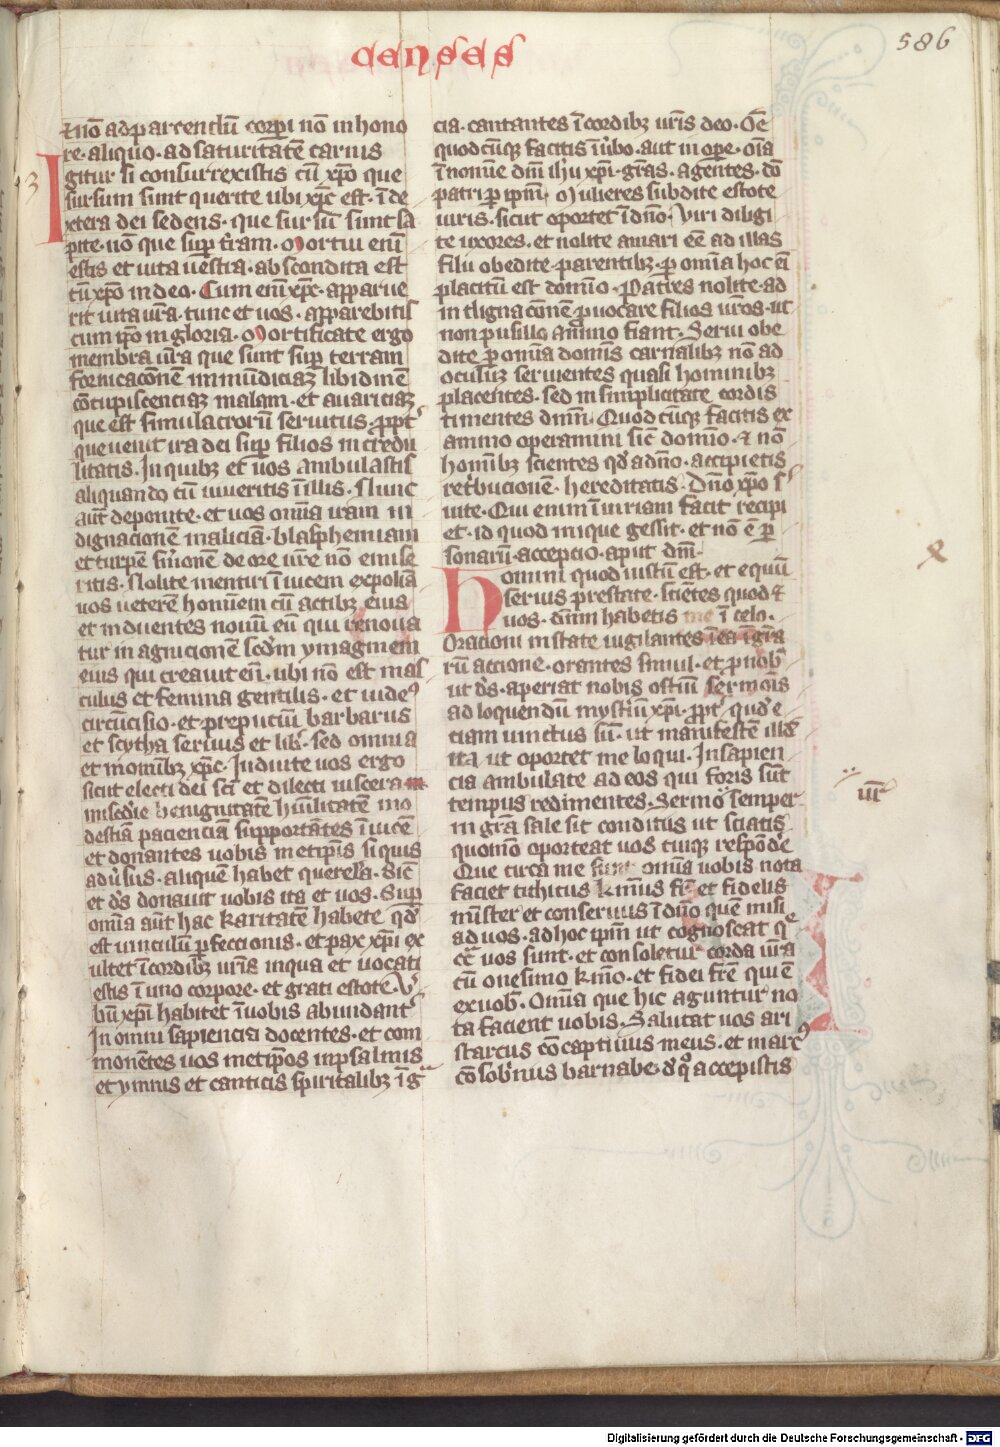 censes
586
⁊ nō ad parcendū corpi nō in hono
re aliquo. ad saturitatē carnis
3
Igitur si consurrexistis cū xp̄o que
sursum sunt querite ubi xp̄c est. ī de
xtera dei sedens. que sursū sunt sa
pite. nō que sup t̄ram. Mortui enī
estis et uita uēstra. abscondita est
cū xp̄o in deo. Cum enī xp̄c. apparue
rit uita ur̄a. tunc et uos. apparebitis
cum ip̄o in gloria. Mortificate ergo
membra ur̄a que sunt sup̄ terram
fornicacōnē inmūdiciaʒ libidinē
cōcupiscenciaʒ malam. et auariciaʒ
que est simulacrorū seruitus. ꝓpt̄
que uenit ira dei sup̄ filios incredu
litatis. In quibʒ et uos ambulastis
aliquando cū uiueritis ī illis. Nunc
aūt deponite. et uos omnia iram in
dignacionē maliciā. blasphemiam
et turpē sm̄onē de ore ur̄e nō emise
ritis. Nolite mentiri īuicem expoliā
uos ueterē hominem cū actibʒ eius
et induentes nouū eū qui renoua
tur in agnicionē scd̄m ymaginem
eius qui creauit eū. ubi nō est mas
culus et femina gentilis. et iudeꝰ
circūcisio. et prepuciū barbarus
et scytha seruus et lib̄. sed omnia
et in omībʒ xp̄c. Induite uos ergo
sicut electi dei sc̄i et dilecti uiscera
mis̄c̄die benignitatē hūilitatē mo
destiā pacienciā supportātes īuicē
et donantes uobis metip̄is si quis
adūsus. aliquē habet querelā. Sic̄
et dn̄s donauit uobis ita et uos. Sup̄
omīa aūt hac karitatē habete qd̄
est uinculū ꝑfeccionis. et pax xp̄i ex
ultet ī cordibʒ ur̄is in qua et uocati
estis ī uno corpore. et grati estote. V̄
bū xp̄i habitet ī uobis abundant̄
In omni sapiencia docentes. et com
monētes uos metip̄os in psalmis
et ymnis et canticis sp̄iritalibʒ ī ḡ
cia. cantantes ī cordibʒ ur̄is deo. Om̄e
quodcūqʒ facitis ī ūbo. aut in oꝑe. oīa
ī nomīe dm̄i ih̄u xp̄i. gr̄as. agentes. dō
patri ꝑ ip̄m. Mulieres subdite estote
uiris. sicut oportet ī dn̄o. Viri diligi
te uxores. et nolite amari eē ad illas
Filii obedite. parentibʒ. ꝑ omīa hoc eī
placitū est domīo. Patres nolite. ad
indignacōnē ꝓuocare filios ur̄os. ut
non pusillo animo fiant. Serui obe
dite ꝑ omīa domīs carnalibʒ nō ad
oculūʒ seruientes quasi hominibʒ
placentes. sed in simplicitate cordis
timentes dm̄m. Quodcūqʒ facitis ex
animo operamini sic̄ domīo. ⁊ nō
homībʒ scientes qd̄ a dn̄o. accipietis
ret̄bucionē. hereditatis. Dn̄o xp̄o s̄
uite. Qui enim īiuriam facit recipi
et. id quod inique gessit. et nō ē ꝑ
sonarū. accepcio. aput dm̄.
Domini quod iustū est. et equū
seruis prestate. sciētes quod ⁊
uos. dn̄m habetis ī celo.
Oracioni instate uigilantes ī ea ī gr̄a
rū accione. orantes simul. et ꝓ nob̄
ut ds̄. aperiat nobis ostiū sermōis
ad loquendū mysteriū xp̄i. ꝓpt̄ qud̄ e
ciam uinctus sū. ut manifestē illd̄
ita ut oportet me loqui. In sapien
cia ambulate ad eos qui foris sūt
tempus redimentes. Sermo semper
ur̄
in gr̄a sale sit conditus ut sciatis
quomō oporteat uos cuiqʒ respōde
Que circa me sunt omīa uobis nota
faciet tithicus kmūs fr̄ et fidelis
mīster et conseruus ī dn̄o quē misi
ad uos. ad hoc ip̄m ut cognoscat q̄
cc̄ uos sunt. et consoletur corda ur̄a
cū onesimo kmō. et fidei fr̄e qui ē
ex uob̄. Omīa que hic aguntur no
ta facient uobis. Salutat uos ari
starcus cōcaptiuus meus. et marcꝰ
cōsobrinus barnabe. d̄ qͦ accepistis
Digitalisierung gefördert durch die Deutsche Forschungsgemeinschaft - DFG